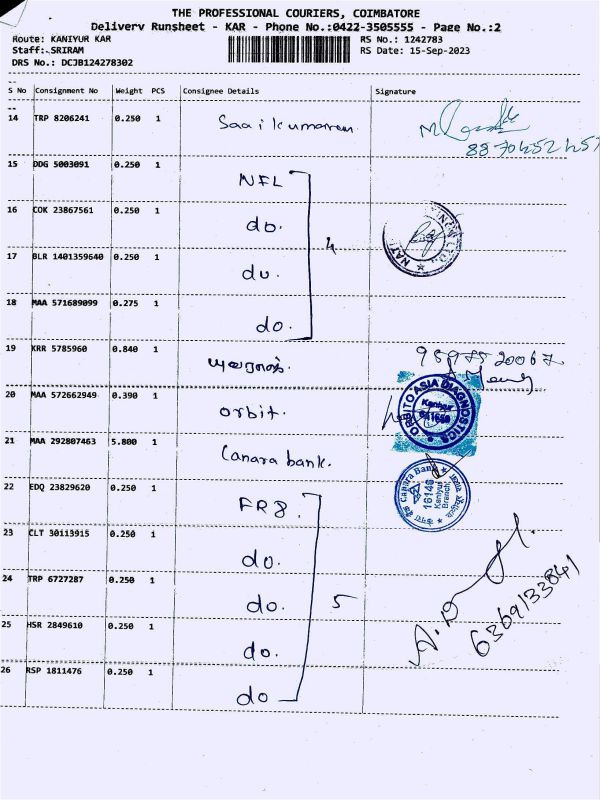 THE PROFESSIONAL COURIERS, COIMBATORE
Delivery Runsheet - KAR - Phone No.:0422-3505555 - Page No.:2
Route: KANIYUR KAR RS No.: 1242783
Staff: SRIRAM RS Date: 15-Sep-2023
DRS No.: DCJB124278302
S No Consignment No Weight PCS Consignee Details Signature
14 TRP 8206241 0.250 1 Saaikumaran
15 DDG 5003091 0.250 1 NFL
16 COK 23867561 0.250 1 do.
4
17 BLR 1401359640 0.250 1 do.
18 MAA 571689099 0.275 1 do.
19 KRR 5785960 0.840 1 யுவராஜ்
20 MAA 572662949 0.390 1 orbit. ORBITO ASIA DIAGNOSTICS Kaniyur
21 MAA 292807463 5.800 1 Canara bank. Canara Bank 16146 Kaniyur Branch
22 EDQ 23829620 0.250 1
23 CLT 30113915 0.250 1 do.
24 TRP 6727287 0.250 1 do. 5
6369133841
25 HSR 2849610 0.250 1 do.
26 RSP 1811476 0.250 1 do